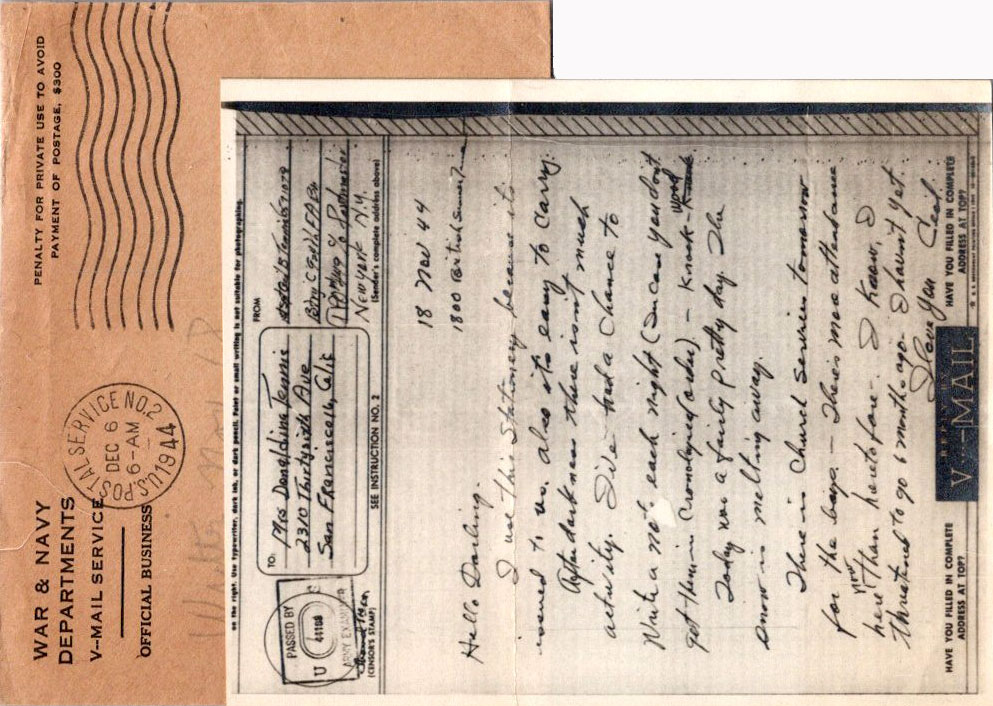 PENALTY FOR PRIVATE USE TO AVOID
PAYMENT OF POSTAGE, $300
U.S. POSTAL SERVICE NO. 2
DEC 6
6-AM
1944
WAR & NAVY
DEPARTMENTS
V--MAIL SERVICE
OFFICIAL BUSINESS
on the right. Use typewriter, dark ink, or dark pencil. Faint or small writing is not suitable for photographing.
PASSED BY
U S
44188
ARMY EXAMINER
(CENSOR'S STAMP)
TO:
Mrs Donaldina Tennis
2310 Thirtysixth Ave
San Francisco, Calif
SEE INSTRUCTION NO. 2
FROM
Btry C FA Bn
APO c/o Postmaster
New York N.Y.
(Sender's complete address above)
18 Nov 44
1800 British Summer Time
Hello Darling.
I use this Stationery because its
issued to us. also its easy to carry.
After darkness there isn't much
activity. I've had a chance to
Write a note each night (Incase you dont
get them in cronological order) - Knock wood
Today was a fairly pretty day. The
snow is melting away.
There is Church Services tomorrow
for the boys. - There's more attendance
here now than heretofore. I Know, I
threatened to go 6 months ago. I havent yet.
I Love You
HAVE YOU FILLED IN COMPLETE
ADDRESS AT TOP?
V--MAIL
HAVE YOU FILLED IN COMPLETE
ADDRESS AT TOP?